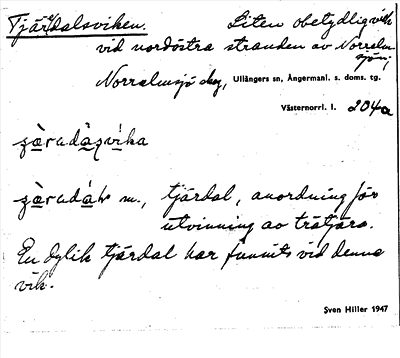 Tjärdalsviken. Liten obetydlig vik
vid nordöstra stranden av Norralm-
sjön;
Norralmsjö by, Ullångers sn, Ångermanl. s. doms. tg.
Västernorrl. l. 204a
m., tjärdal, anordning för
utvinning av trätjära.
En dylik tjärdal har funnits vid denna
vik.
Sven Hiller 1947